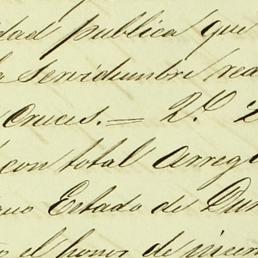 dad publica que
servidumbre rea
cruces. = 2.º 2
con total arreg
Estado de Du
el honor de